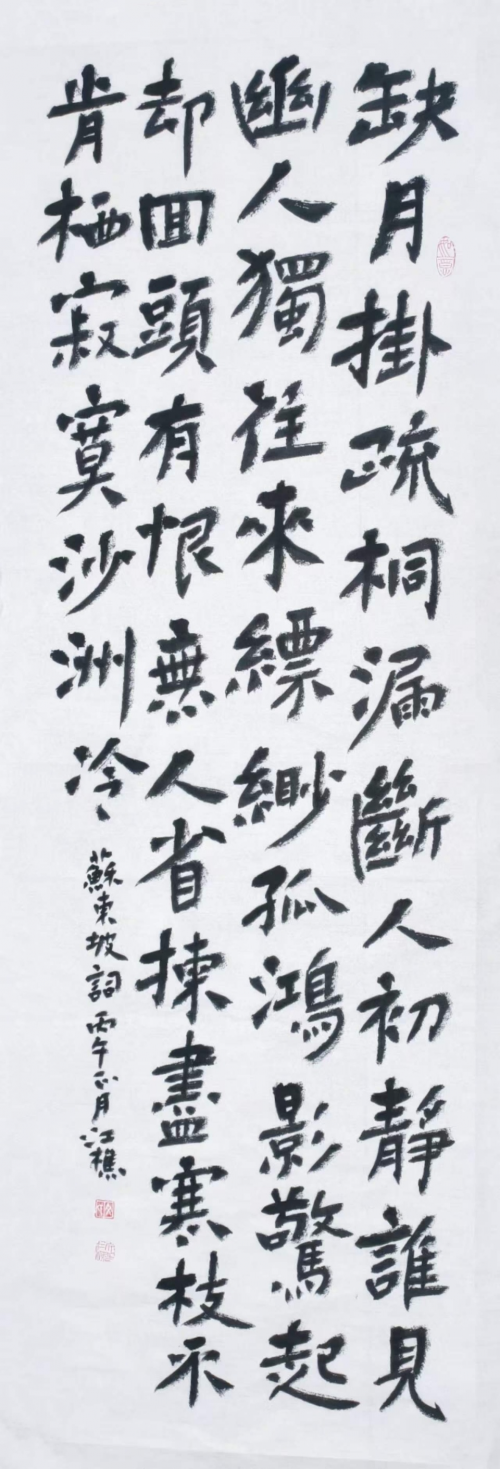 缺月掛疏桐漏斷人初靜誰見
幽人獨往來縹緲孤鴻影驚起
却回頭有恨無人省揀盡寒枝不
肯栖寂寞沙洲冷
蘇東坡詞丙午正月江樵